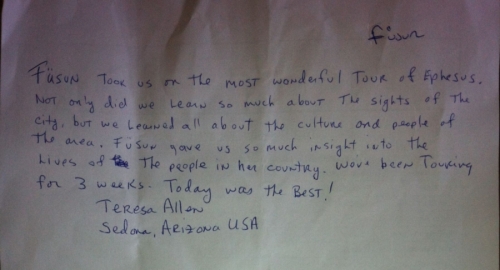 Füsun
FÜSUN Took us on the most wonderful Tour of Ephesus.
Not only did we learn so much about The sights of The
city, but we learned all about the culture and people of
The area. Fusun gave us so much insight into the
Lives of The people in her country. We've been Touring
for 3 weeks. Today was the Best!
Teresa Allen
Sedona, Arizona USA